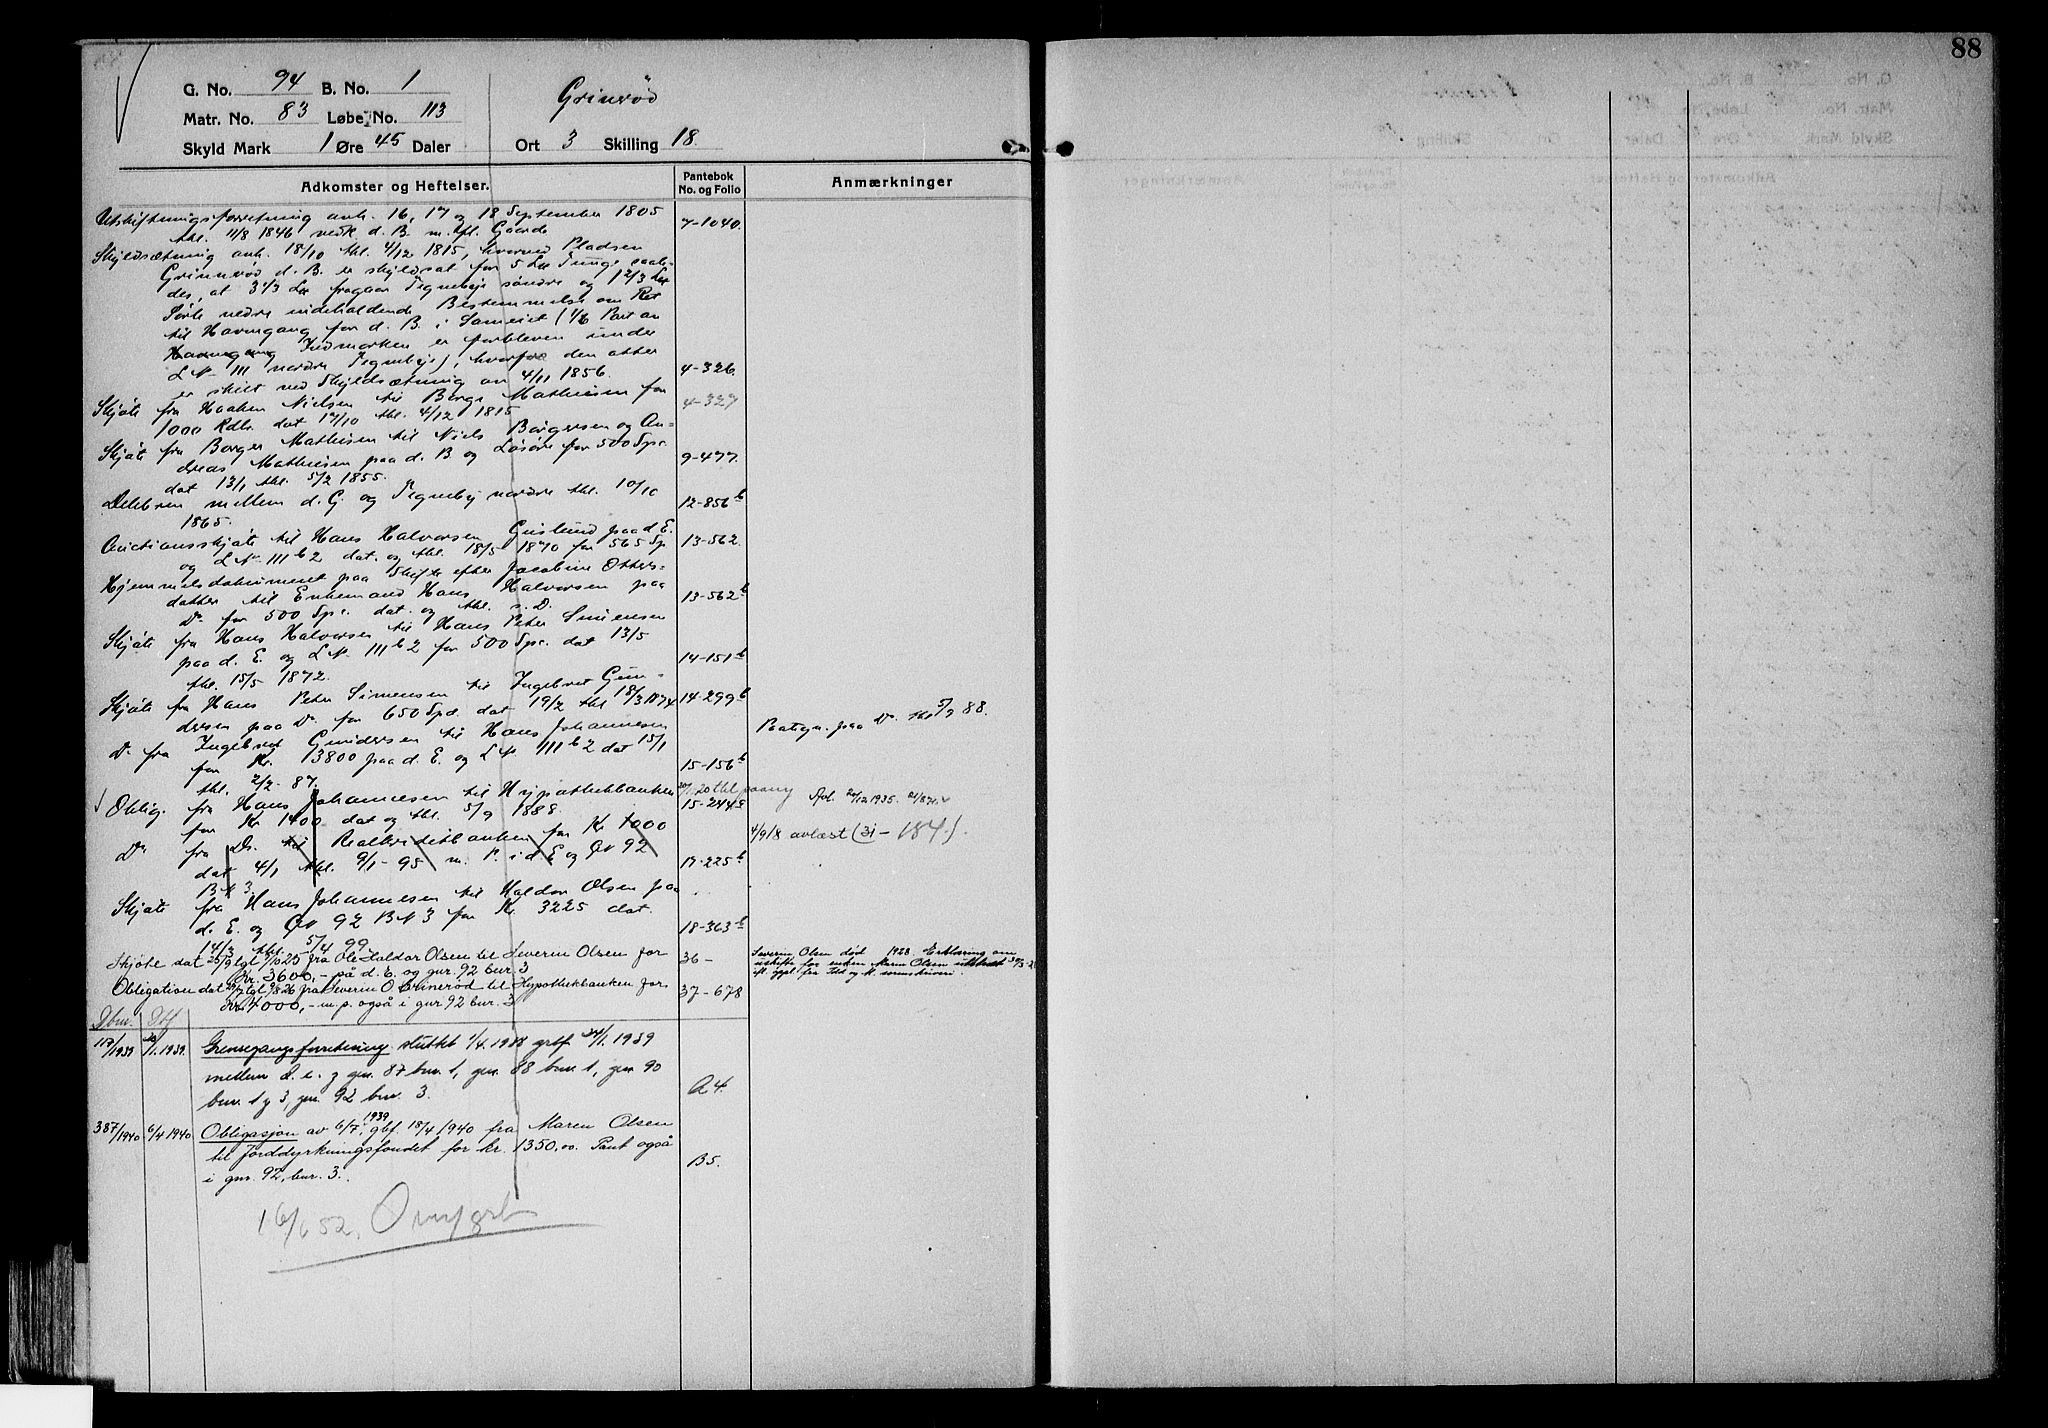 88
G. No. 94 B. No. 1
Grinrød
Matr. No. 83 Løbe No. 113
Skyld Mark 1 Øre 45 Daler Ort 3 Skilling 18.
Adkomster og Heftelser. Pantebok No. og Folio Anmærkninger
Utskiftningsforretning anh. 16, 17 og 18 September 1805
thl. 11/8 1846 vedk d. B. m. fl. Gaarde 7-1040.
Skyldsætning anh. 18/10 thl. 4/12 1815, hvorved Pladsen
Grinnrød d. B. er skyldsat for 5 L℔ Tunge saale-
des, at 3 1/3 L℔ fragaar Tegneby søndre og 1 2/3 L℔
nedre indeholdende Bestemmelse om Ret
til Havngang for d. B. i Sameiet (1/6 Part av
Havnegang Indmarken er forbleven under
L№ 111 nordre Tegneby), hvorfor den atter
er skilt ved Skyldsætning av 4/11 1856. 4-326.
Skjøte fra Haaken Nielsen til Børge Mathiesen for
1000 Rdlr. dat 17/10 thl. 4/12 1815 4-327
Skjøte fra Borger Mathisen til Niels Borgersen og An-
dreas Mathiesen paa d. B og Løsøre for 500 Spc.
dat 13/1 thl. 5/2 1855. 9-477.
Delebrev mellem d. G. og Tegneby nordre thl. 10/10
1865. 12-856 b
Auctionsskjøte til Hans Halvorsen Guslund paa d. E.
og L№ 111 b 2 dat. og thl. 18/5 1870 for 565 Sp. 13-562.
Hjemmelsdokument paa Skifte efter Jacobine Otters-
datter til Enkemand Hans Halvorsen paa
Do for 500 Spc. dat. og thl. s. D. 13-562 b
Skjøte fra Hans Halvorsen til Hans Peter Simensen
paa d. E. og L№ 111 b 2 for 500 Spc. dat 13/5
thl. 15/5 1872. 14-151 b
Skjøte fra Hans Peter Simensen til Ingebret Gun-
dersen paa Do for 650 Spd. dat 19/2 thl 18/3 1874 14-299 b
Do fra Ingebret Gundersen til Hans Johannesen
for Kr. 13800 paa d. E. og L№ 111 b 2 dat 15/1
thl. 2/2-87. 15-156 b
paa Do thl 5/9 88.
Oblig. fra Hans Johannesen til Hypothekbanken
for Kr 1400 dat og thl. 5/9 1888. 15-244 b
Avl. 20/12 1935.
Do fra Ds. til Realkreditbanken for Kr 1000
dat 4/1 thl. 9/1-95 m. P. i d E og GN 92
BN 3. 17-225 b
4/918 avlæst (31-184.)
Skjøte fra Hans Johannesen til Haldor Olsen paa
d. E. og GN 92 BN 3 for Kr. 3225 dat.
14/3 thl. 5/4 99 18-363 b
Skjøte dat 26/9 tgl 9/10 25 fra Ole Haldor Olsen til Severin Olsen for
kr. 3600,- på d. E. og gnr. 92 bnr. 3 36-
Severin Olsen død 1928. Erklæring om
uskifte for enken Maren Olsen
Obligation dat tgl 9/8 26 fra Severin O Grinerød til Hypothekbanken for
kr. 4000,- m. p. også i gnr 92 bnr. 3 37-678
Dbnr. Dbf
117/1939 20/1.1939. Grensegangsforretning sluttet 1/4.1938 grbf. 20/1.1939
mellem d. e. og gnr. 87 bnr. 1, gnr. 88 bnr. 1, gnr. 90
bnr. 1 og 3, gnr. 92 bnr. 3. A 4.
387/1940 6/4 1940. Obligasjon av 6/7 1939, gbf. 18/4 1940 fra Maren Olsen
til Jorddyrkningsfondet for kr. 1350,00. Pant også
i gnr. 92, bnr. 3. B 5.
16/6 52, Omgrb